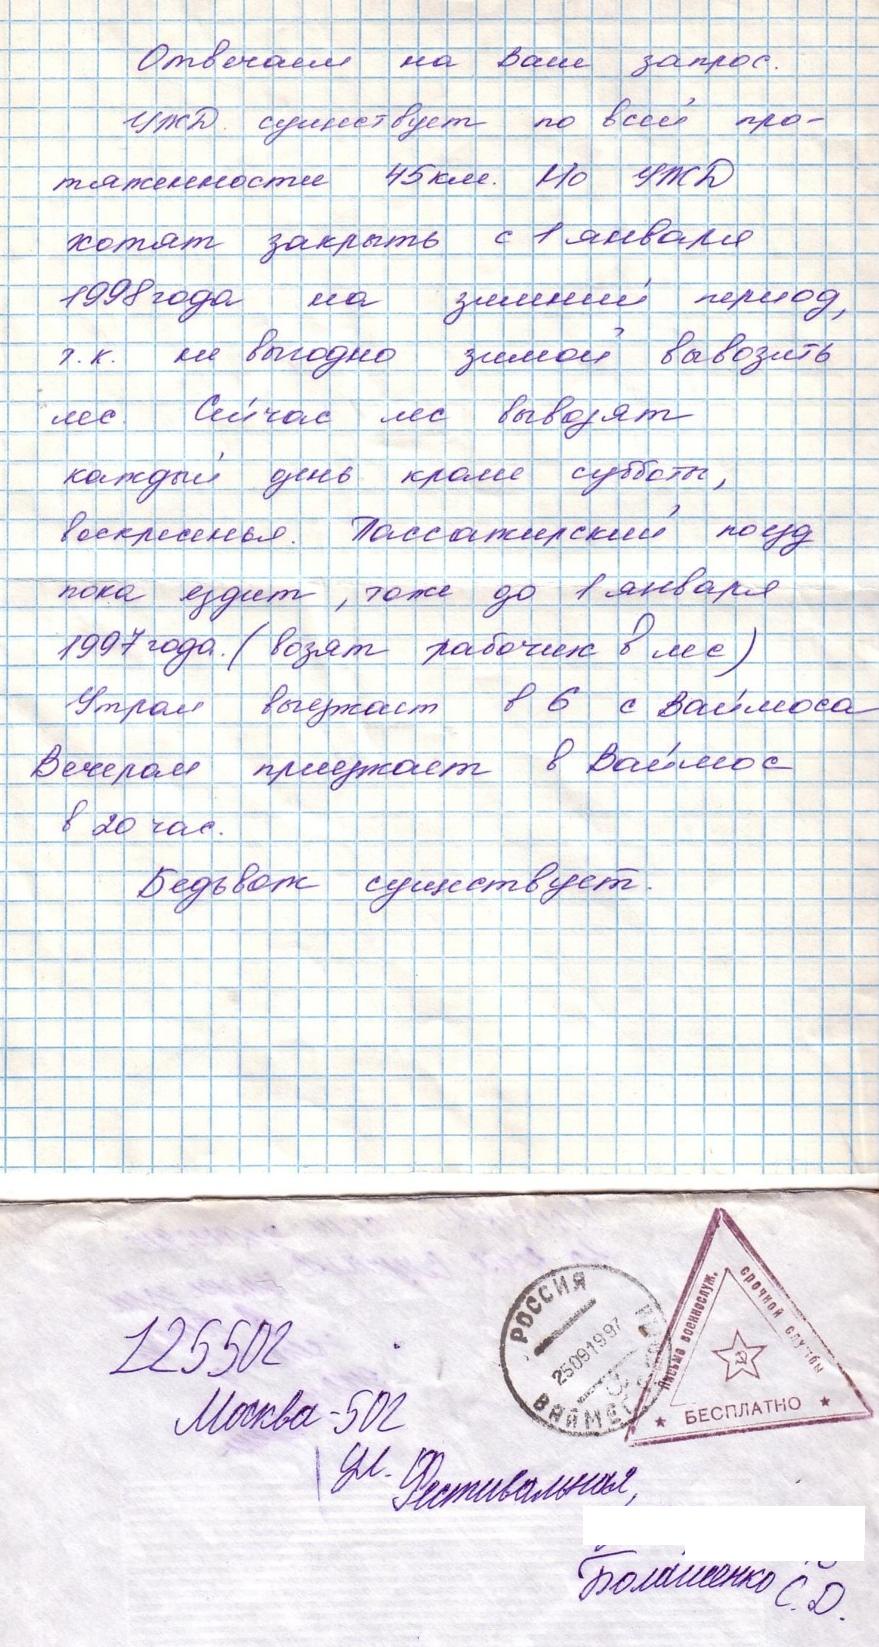 Отвечаем на Ваш запрос.
УЖД. существует по всей про-
тяженности 45км. Но УЖД
хотят закрыть с 1 января
1998 года на зимний период,
т.к. не выгодно зимой вывозить
лес. Сейчас лес вывозят
каждый день кроме субботы,
воскресенья. Пассажирский поезд
пока ездит, тоже до 1 января
1997 года. (возят рабочих в лес)
Утром выезжает в 6 с Ваймоса
Вечером приезжает в Ваймос
в 20 час.
Бедьвож существует.
РОССИЯ
25091997
ВАЙМЕС
Письмо военнослуж. срочной службы
БЕСПЛАТНО
125502
Москва-502
ул. Фестивальная,
Болашенко С.Д.